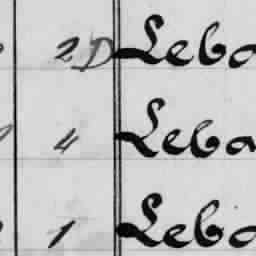 2D Lebo
4 Leba
1 Lebo